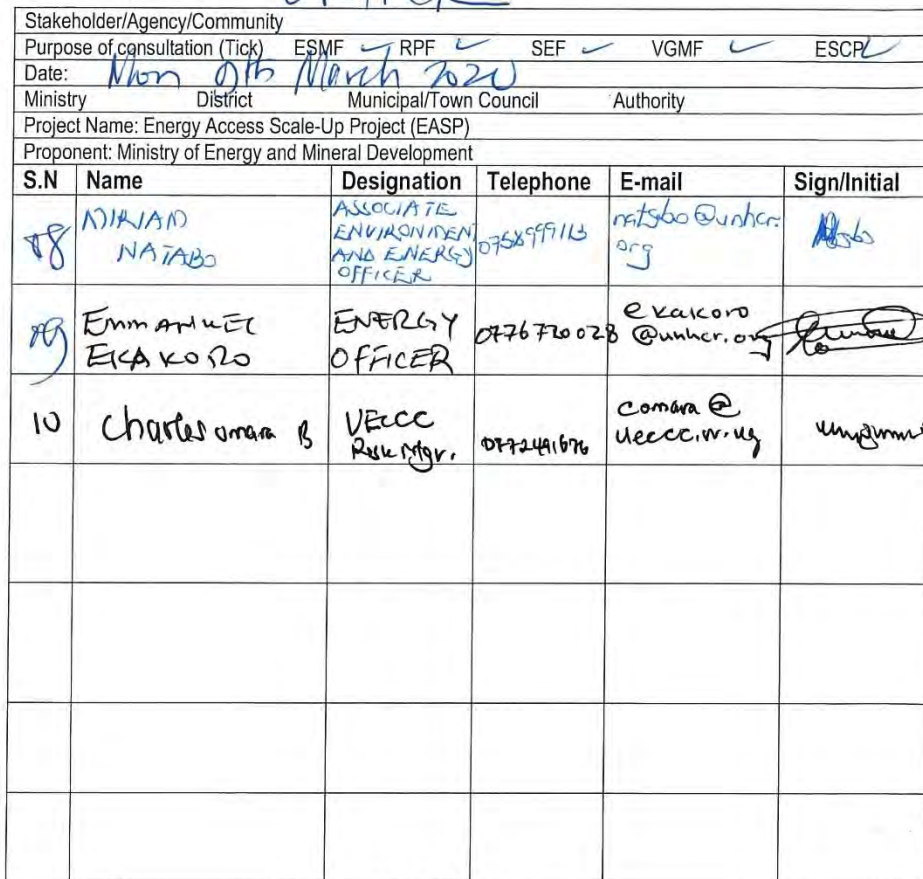 Stakeholder/Agency/Community
Purpose of consultation (Tick) ESMF ✓ RPF ✓ SEF ✓ VGMF ✓ ESCP ✓
Date: Mon 9th March 2020
Ministry District Municipal/Town Council Authority
Project Name: Energy Access Scale-Up Project (EASP)
Proponent: Ministry of Energy and Mineral Development
S.N Name Designation Telephone E-mail Sign/Initial
08 MIRIAM NATABO ASSOCIATE ENVIRONMENT AND ENERGY OFFICER 0758999113 natabo@unhcr.org
09 Emmanuel EKAKORO ENERGY OFFICER 0776720028 ekakoro@unhcr.org
10 Charles omara B UECCC Risk Mgr. 0772491676 comara@ueccc.or.ug